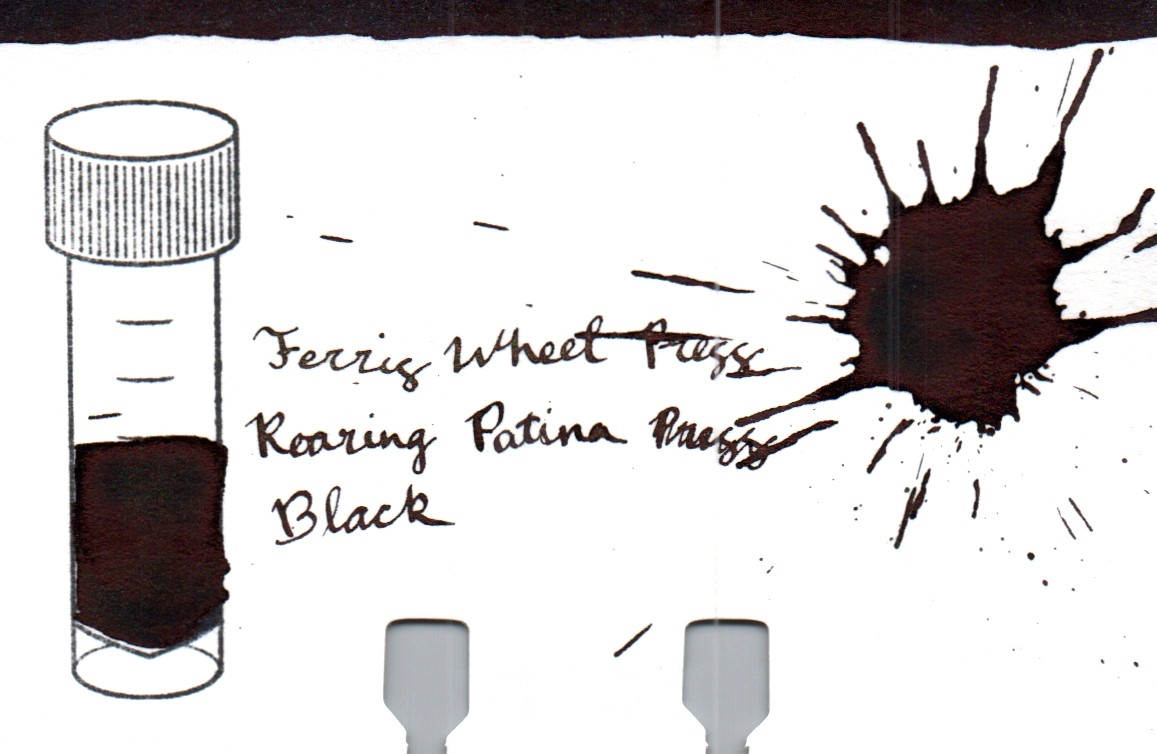 Ferris Wheel Press
Roaring Patina Press
Black